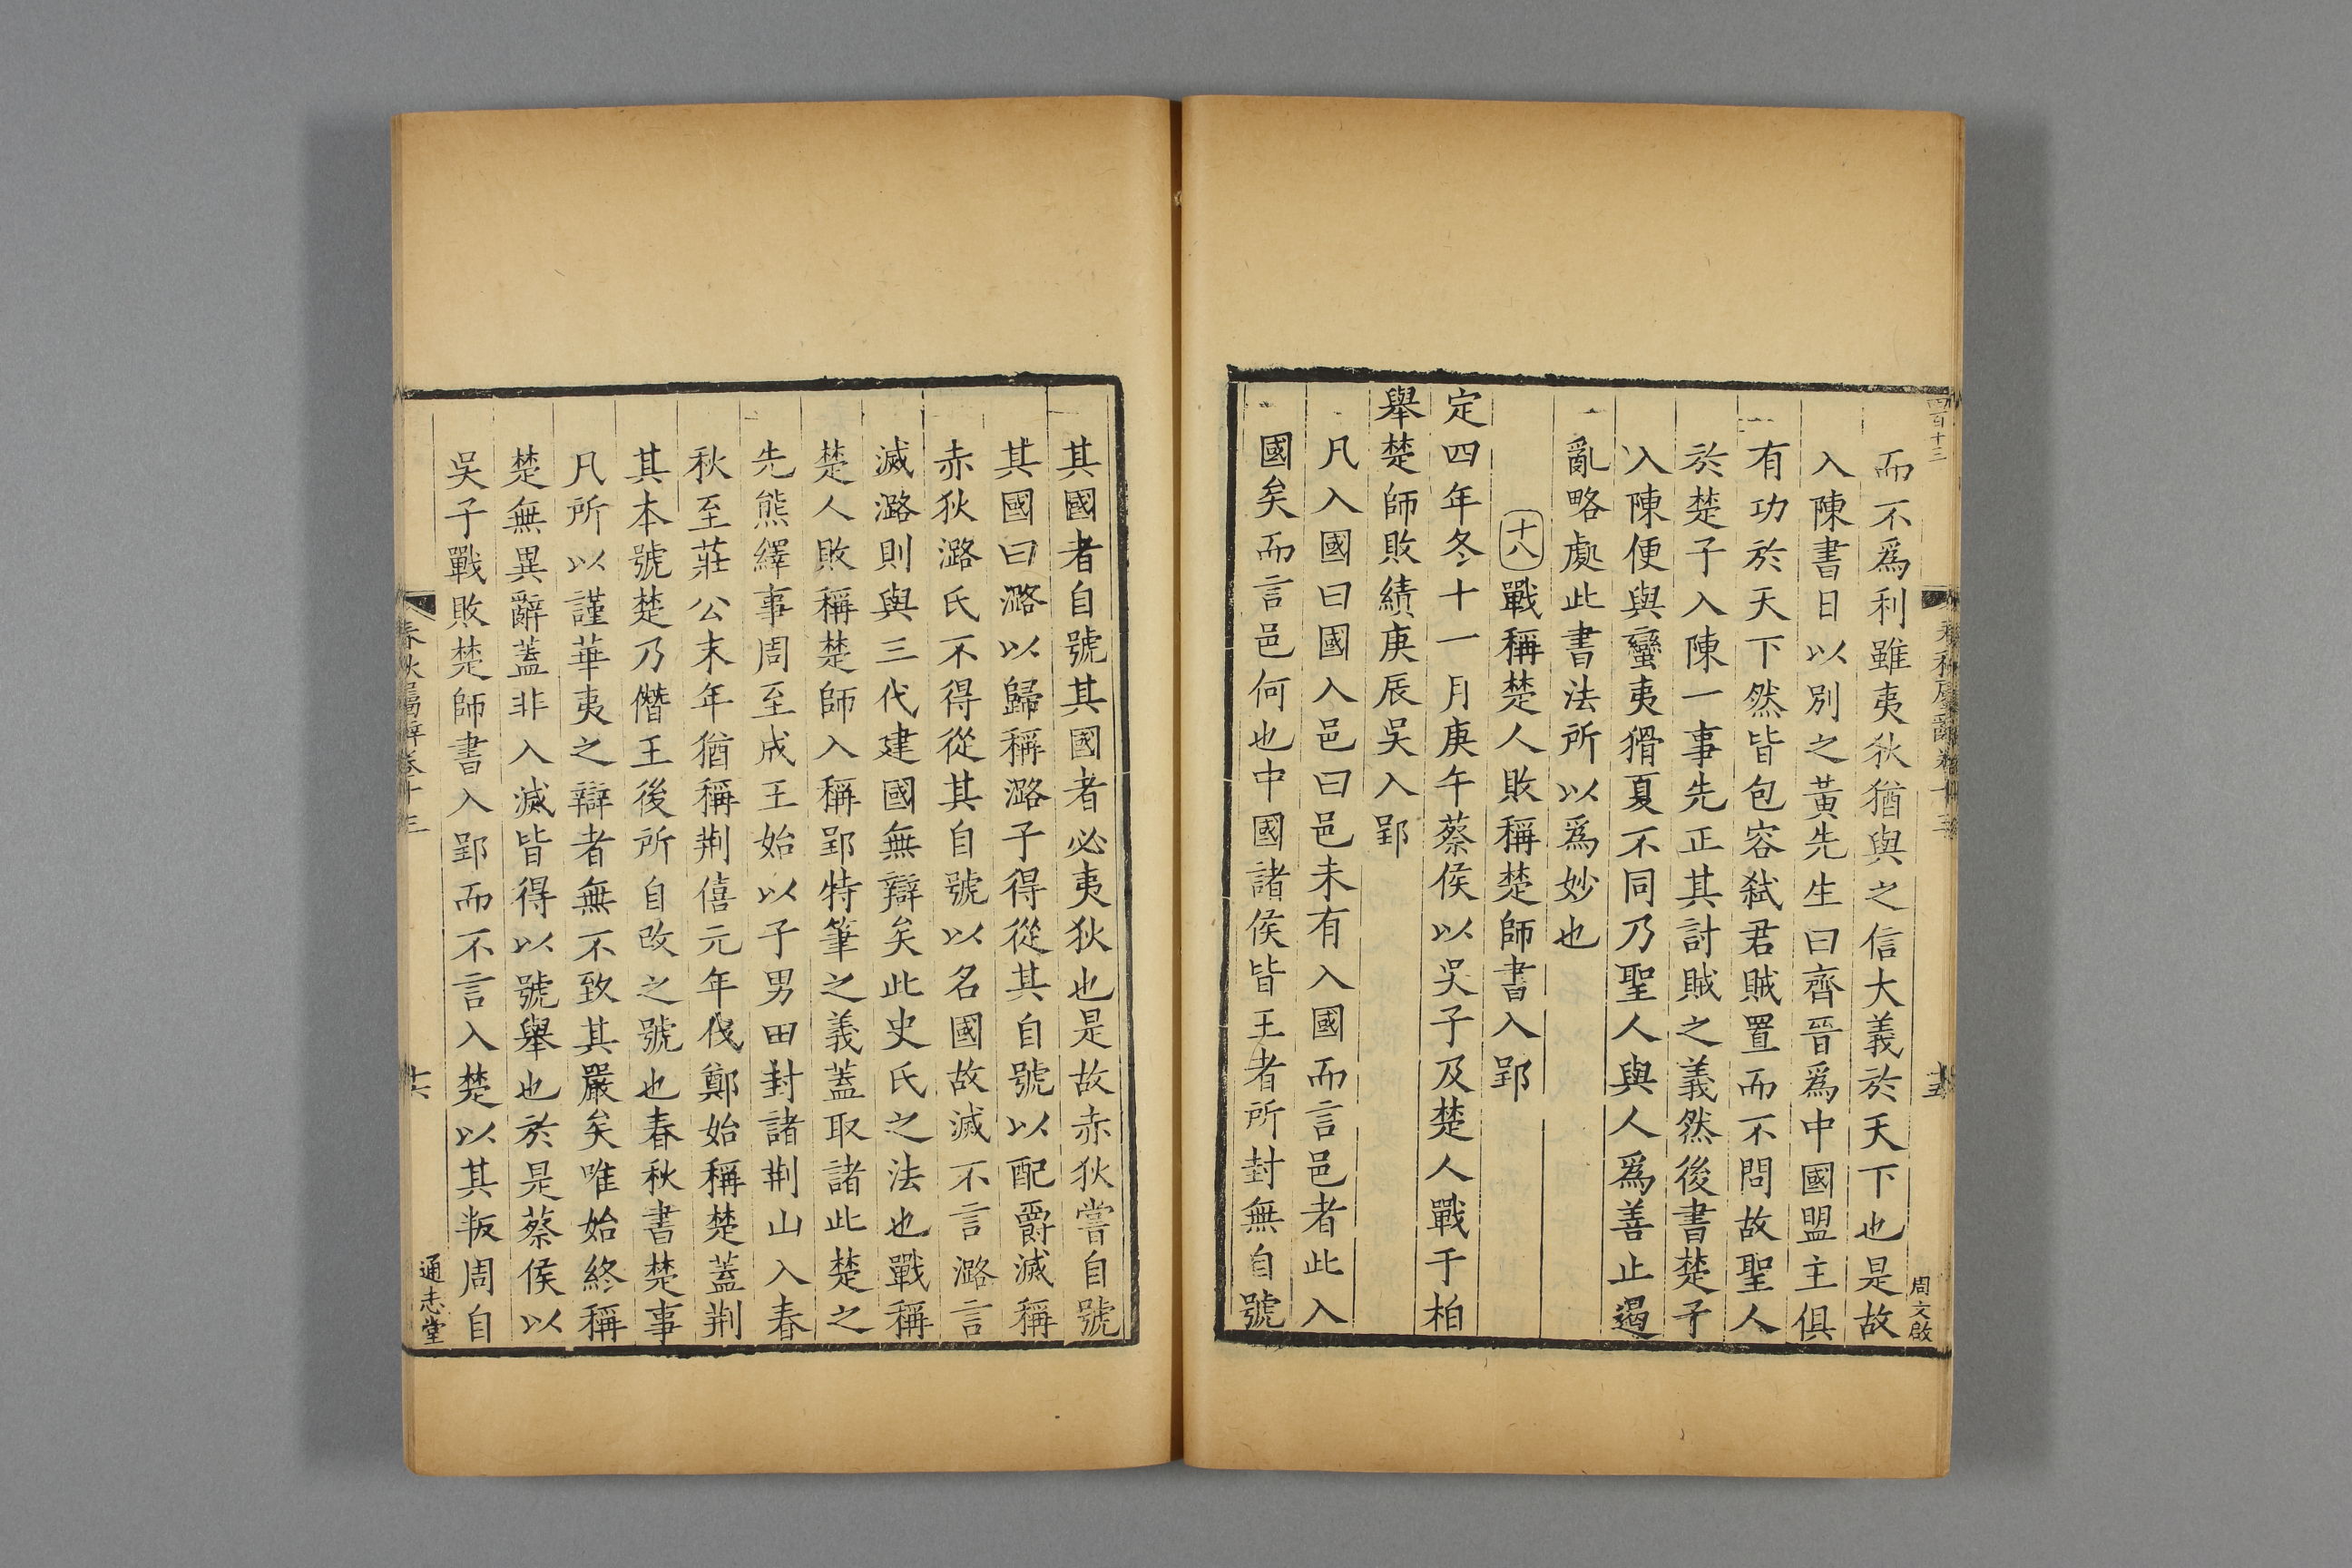 四百十三
春秋屬辭卷十三
十五
周文啟
而不爲利雖夷狄猶與之信大義於天下也是故
入陳書日以別之黃先生曰齊晉爲中國盟主俱
有功於天下然皆包容弒君賊置而不問故聖人
於楚子入陳一事先正其討賊之義然後書楚子
入陳便與蠻夷猾夏不同乃聖人與人爲善止遏
亂略處此書法所以爲妙也
十八戰稱楚人敗稱楚師書入郢
定四年冬十一月庚午蔡侯以吳子及楚人戰于柏
舉楚師敗績庚辰吳入郢
凡入國曰國入邑曰邑未有入國而言邑者此入
國矣而言邑何也中國諸侯皆王者所封無自號
其國者自號其國者必夷狄也是故赤狄嘗自號
其國曰潞以歸稱潞子得從其自號以配爵滅稱
赤狄潞氏不得從其自號以名國故滅不言潞言
滅潞則與三代建國無辯矣此史氏之法也戰稱
楚人敗稱楚師入稱郢特筆之義蓋取諸此楚之
先熊繹事周至成王始以子男田封諸荆山入春
秋至莊公末年猶稱荆僖元年伐鄭始稱楚蓋荆
其本號楚乃僭王後所自改之號也春秋書楚事
凡所以謹華夷之辯者無不致其嚴矣唯始終稱
楚無異辭蓋非入滅皆得以號舉也於是蔡侯以
吳子戰敗楚師書入郢而不言入楚以其叛周自
春秋屬辭卷十三
十六
通志堂